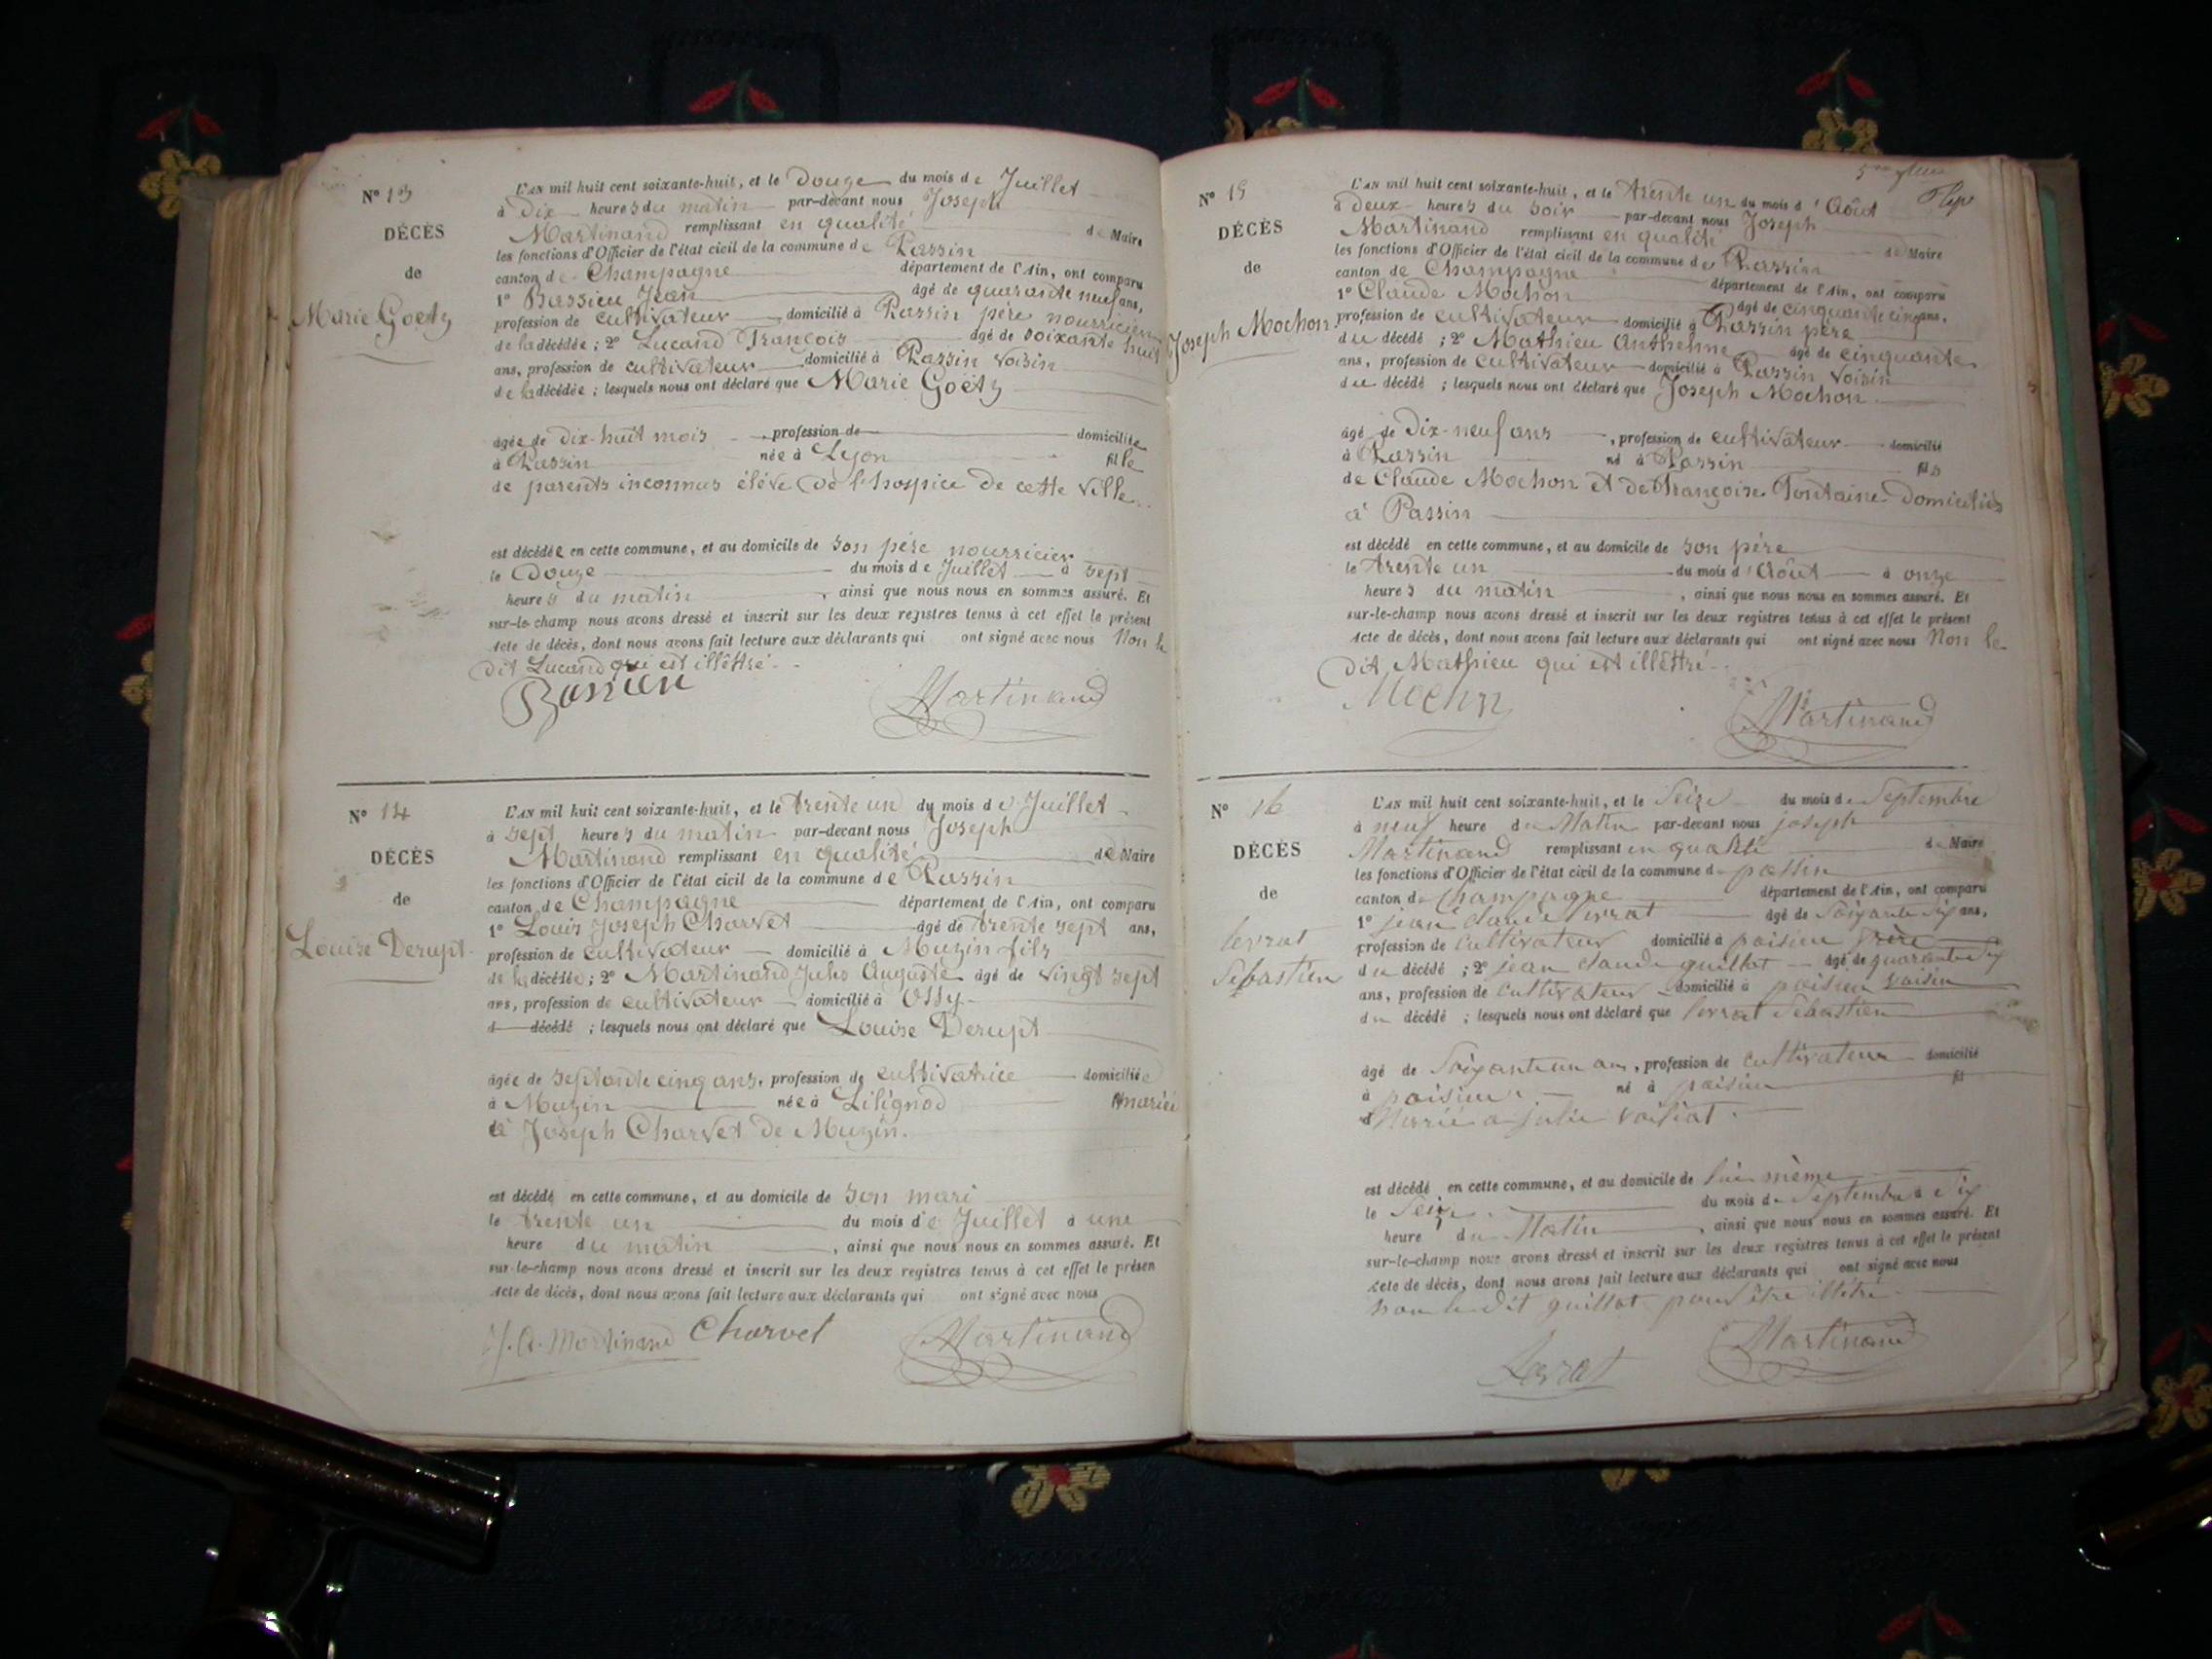 N° 13
DÉCÈS
de
Marie Goëtz
L'AN mil huit cent soixante-huit, et le Douze du mois de Juillet
à Dix heures du matin par-devant nous Joseph
Martinand remplissant en qualité de Maire
les fonctions d'Officier de l'état civil de la commune de Passin
canton de Champagne département de l'Ain, ont comparu
1° Bassieu Jean âgé de quarante neuf ans,
profession de cultivateur domicilié à Passin père nourricier
de la décédée ; 2° Lucand François âgé de soixante huit
ans, profession de cultivateur domicilié à Passin voisin
de la décédée ; lesquels nous ont déclaré que Marie Goëtz
âgée de dix-huit mois , profession de domiciliée
à Passin née à Lyon fille
de parents inconnus élève de l'hospice de cette ville
est décédée en cette commune, et au domicile de son père nourricier
le Douze du mois de Juillet à sept
heures du matin , ainsi que nous nous en sommes assuré. Et
sur-le-champ nous avons dressé et inscrit sur les deux registres tenus à cet effet le présent
acte de décès, dont nous avons fait lecture aux déclarants qui ont signé avec nous Non le
dit Lucand qui est illéttré
Bassieu Martinand
N° 14
DÉCÈS
de
Louise Derupt
L'AN mil huit cent soixante-huit, et le trente un du mois de Juillet
à sept heures du matin par-devant nous Joseph
Martinand remplissant en qualité de Maire
les fonctions d'Officier de l'état civil de la commune de Passin
canton de Champagne département de l'Ain, ont comparu
1° Louis Joseph Charvet âgé de trente sept ans,
profession de cultivateur domicilié à Muzin fils
de la décédée ; 2° Martinand Jules Auguste âgé de vingt sept
ans, profession de cultivateur domicilié à Ossy
d décédé ; lesquels nous ont déclaré que Louise Derupt
âgée de septante cinq ans, profession de cultivatrice domiciliée
à Muzin née à Lilignod mariée
à Joseph Charvet de Muzin.
est décédé en cette commune, et au domicile de son mari
le trente un du mois de Juillet à une
heure du matin , ainsi que nous nous en sommes assuré. Et
sur-le-champ nous avons dressé et inscrit sur les deux registres tenus à cet effet le présen
acte de décès, dont nous avons fait lecture aux déclarants qui ont signé avec nous
J. A. Martinand Charvet Martinand
N° 15
DÉCÈS
de
Joseph Mochon
L'AN mil huit cent soixante-huit, et le trente un du mois d'Août
à deux heures du soir par-devant nous Joseph
Martinand remplissant en qualité de Maire
les fonctions d'Officier de l'état civil de la commune de Passin
canton de Champagne département de l'Ain, ont comparu
1° Claude Mochon âgé de cinquante cinq ans,
profession de cultivateur domicilié à Passin père
du décédé ; 2° Mathieu Anthenne âgé de cinquante
ans, profession de cultivateur domicilié à Passin voisin
du décédé ; lesquels nous ont déclaré que Joseph Mochon
âgé de Dix-neuf ans , profession de cultivateur domicilié
à Passin né à Passin fils
de Claude Mochon et de Françoise Fontaine domiciliés
à Passin
est décédé en cette commune, et au domicile de son père
le trente un du mois d'Août à onze
heures du matin , ainsi que nous nous en sommes assuré. Et
sur-le-champ nous avons dressé et inscrit sur les deux registres tenus à cet effet le présent
acte de décès, dont nous avons fait lecture aux déclarants qui ont signé avec nous Non le
dit Mathieu qui est illéttré
Mochn Martinand
N° 16
DÉCÈS
de
levrat
Sébastien
L'AN mil huit cent soixante-huit, et le Seize du mois de Septembre
à neuf heure du Matin par-devant nous joseph
Martinand remplissant en qualité de Maire
les fonctions d'Officier de l'état civil de la commune de passin
canton de Champagne département de l'Ain, ont comparu
1° jean claude levrat âgé de Soixante Six ans,
profession de cultivateur domicilié à poisieu frère
du décédé ; 2° jean claude guillot âgé de quarante Six
ans, profession de cultivateur domicilié à poisieu voisin
du décédé ; lesquels nous ont déclaré que levrat Sébastien
âgé de Soixante un ans, profession de cultivateur domicilié
à poisieu né à poisieu fil
Marié a julie
est décédé en cette commune, et au domicile de lui même
le Seize du mois de Septembre à Six
heure du Matin , ainsi que nous nous en sommes assuré. Et
sur-le-champ nous avons dressé et inscrit sur les deux registres tenus à cet effet le présent
acte de décès, dont nous avons fait lecture aux déclarants qui ont signé avec nous
non le dit guillot pour être illétré
Levrat Martinand